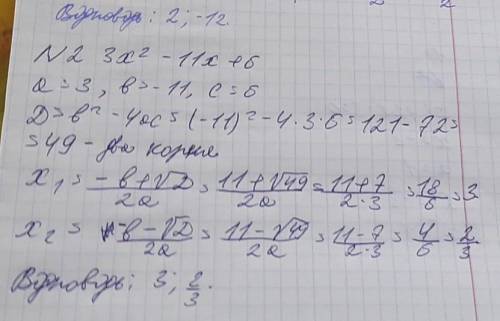 Відповідь: 2; -12.
N2 3x² - 11x + 6
a = 3, в = -11, c = 6
D = в² - 4ac = (-11)² - 4·3·6 = 121 - 72 =
= 49 - два корня
x₁ = (-в+√D)/2a = (11+√49)/2a = (11+7)/(2·3) = 18/6 = 3
x₂ = (-в-√D)/2a = (11-√49)/2a = (11-7)/(2·3) = 4/6 = 2/3
Відповідь: 3; 2/3.